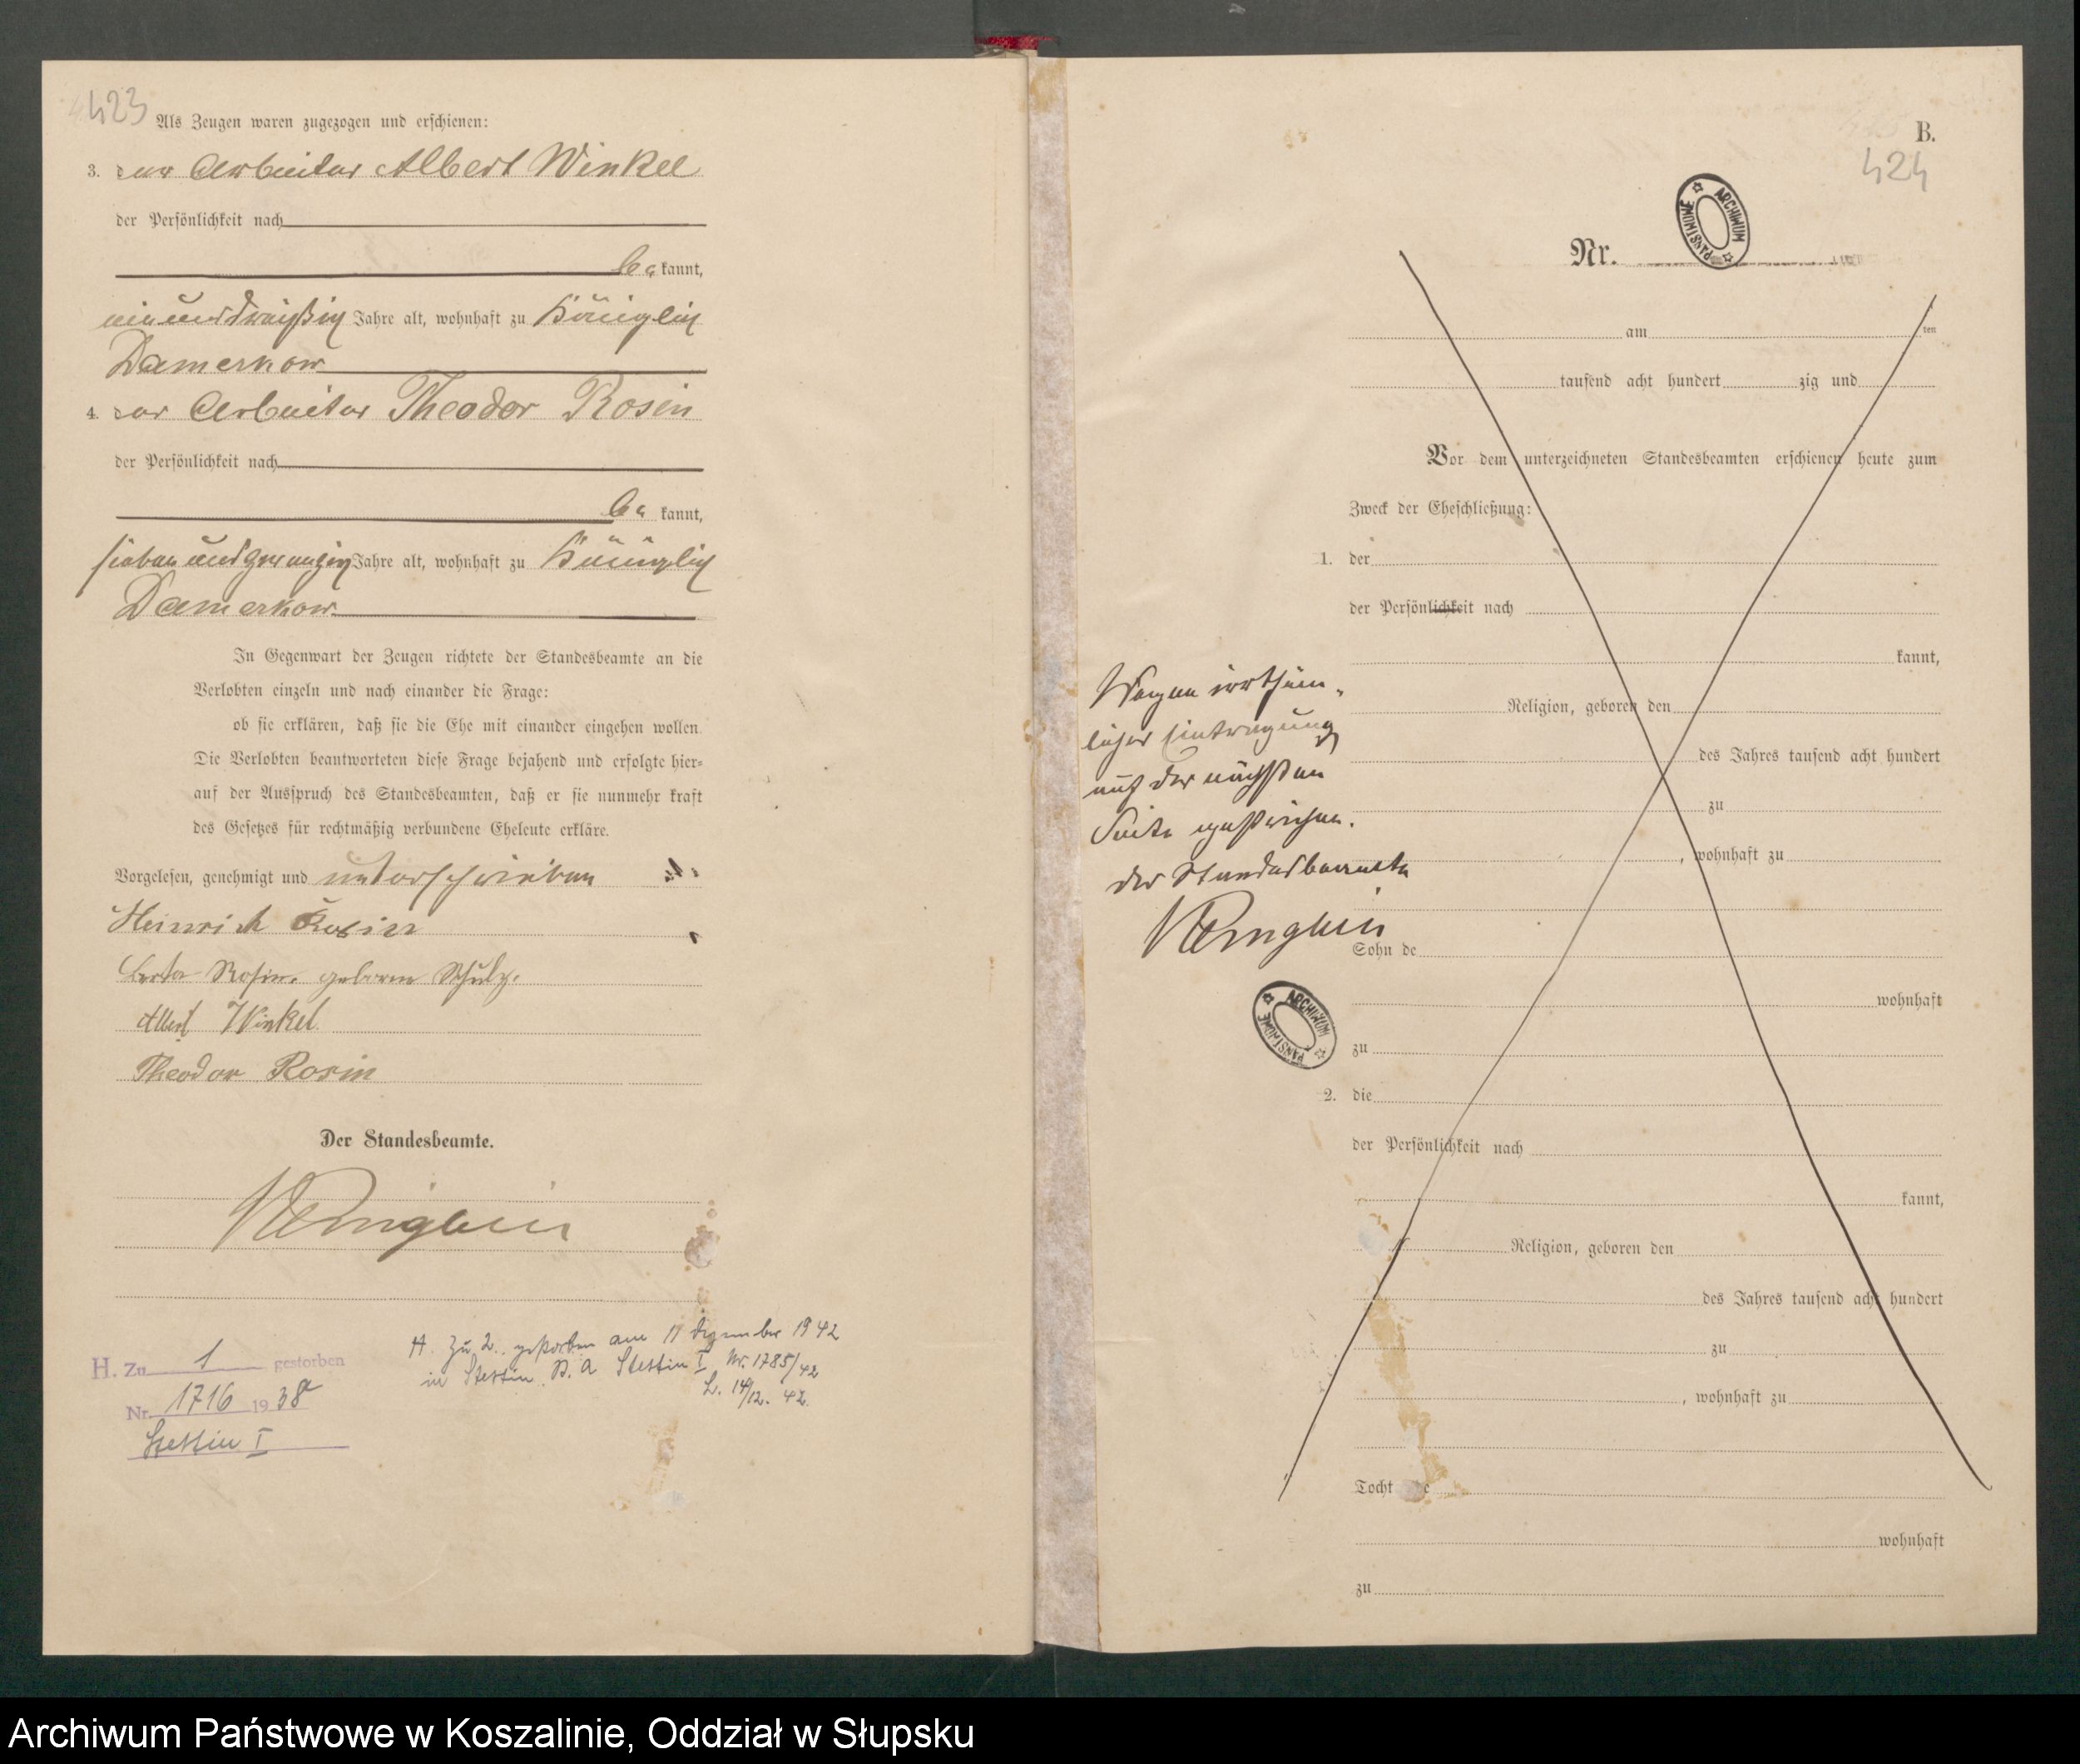 423
Als Zeugen waren zugezogen und erschienen:
3. der Arbeiter Albert Winkel
der Persönlichkeit nach
be kannt,
einunddreißig Jahre alt, wohnhaft zu Königlich
Damerkow
4. der Arbeiter Theodor Rosin
der Persönlichkeit nach
be kannt,
siebenundzwanzig Jahre alt, wohnhaft zu Königlich
Damerkow
In Gegenwart der Zeugen richtete der Standesbeamte an die
Verlobten einzeln und nach einander die Frage:
ob sie erklären, daß sie die Ehe mit einander eingehen wollen.
Die Verlobten beantworteten diese Frage bejahend und erfolgte hier-
auf der Ausspruch des Standesbeamten, daß er sie nunmehr kraft
des Gesetzes für rechtmäßig verbundene Eheleute erkläre.
Vorgelesen, genehmigt und unterschrieben
Heinrich Rosin
Berta Rosin. geboren Schulz.
Albert Winkel
Theodor Rosin
Der Standesbeamte.
H. Zu 1 gestorben
Nr. 1716 1938
Stettin I
H. Zu 2. gestorben am 11 Dezember 1942
in Stettin. St. A Stettin I Nr. 1785/42
L. 14/12. 42.
B.
424
ARCHIWUM PAŃSTWOWE
Nr.
am ten
tausend acht hundert zig und
Vor dem unterzeichneten Standesbeamten erschienen heute zum
Zweck der Eheschließung:
1. der
der Persönlichkeit nach
kannt,
Religion, geboren den
des Jahres tausend acht hundert
zu
, wohnhaft zu
Sohn de
wohnhaft
zu
2. die
der Persönlichkeit nach
kannt,
Religion, geboren den
des Jahres tausend acht hundert
zu
, wohnhaft zu
Tocht de
wohnhaft
zu
Wegen irrthüm-
licher Eintragung
auf der nächsten
Seite gestrichen.
der Standesbeamte
ARCHIWUM PAŃSTWOWE
Archiwum Państwowe w Koszalinie, Oddział w Słupsku